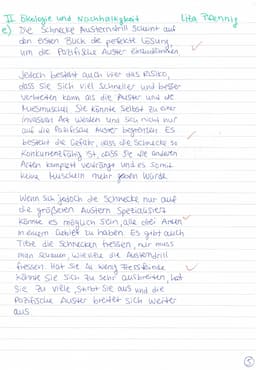 II Ökologie und Nachhaltigkeit Lita Pfennig
e) Die Schnecke Austerndrill scheint auf
den ersten Blick die perfekte Lösung,
um die Pazifische Auster einzudämmen.
Jedoch besteht auch hier das Risiko,
dass sie sich viel schneller und besser
verbreiten kann als die Auster und die
Miesmuschel. Sie könnte selbst zu einer
invasiven Art werden und sich nicht nur
auf die Pazifische Auster begrenzen. Es
besteht die Gefahr, dass die Schnecke so
konkurrenzfähig ist, dass sie die anderen
Arten komplett verdrängt und es somit
keine Muscheln mehr geben würde.
Wenn sich jedoch die Schnecke nur auf
die größeren Austern spezialisiert
könnte es möglich sein, alle drei Arten
in einem Gebiet zu haben. Es gibt auch
Tiere die Schnecken fressen, nur muss
man schauen, wie viele die Austerndrill
fressen. Hat sie zu wenig Fressfeinde
könnte sie sich zu sehr ausbreiten, hat
sie zu viele, stirbt sie aus und die
Pazifische Auster breitet sich weiter
aus.
5